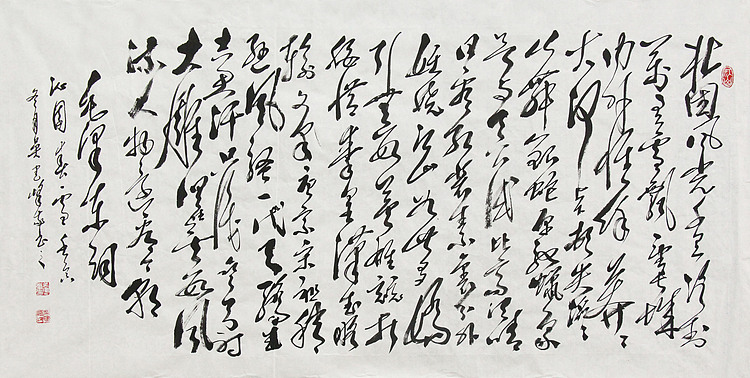 北国风光千里冰封
万里雪飘望长城
内外惟余莽莽
大河上下顿失滔滔
山舞银蛇原驰蜡象
欲与天公试比高须晴
日看红装素裹分外
妖娆江山如此多娇
引无数英雄竞折
腰惜秦皇汉武略
输文采唐宗宋祖稍
逊风骚一代天骄成
吉思汗只识弯弓射
大雕俱往矣数风
流人物还看今朝
毛泽东词
沁园春雪
冬月吴